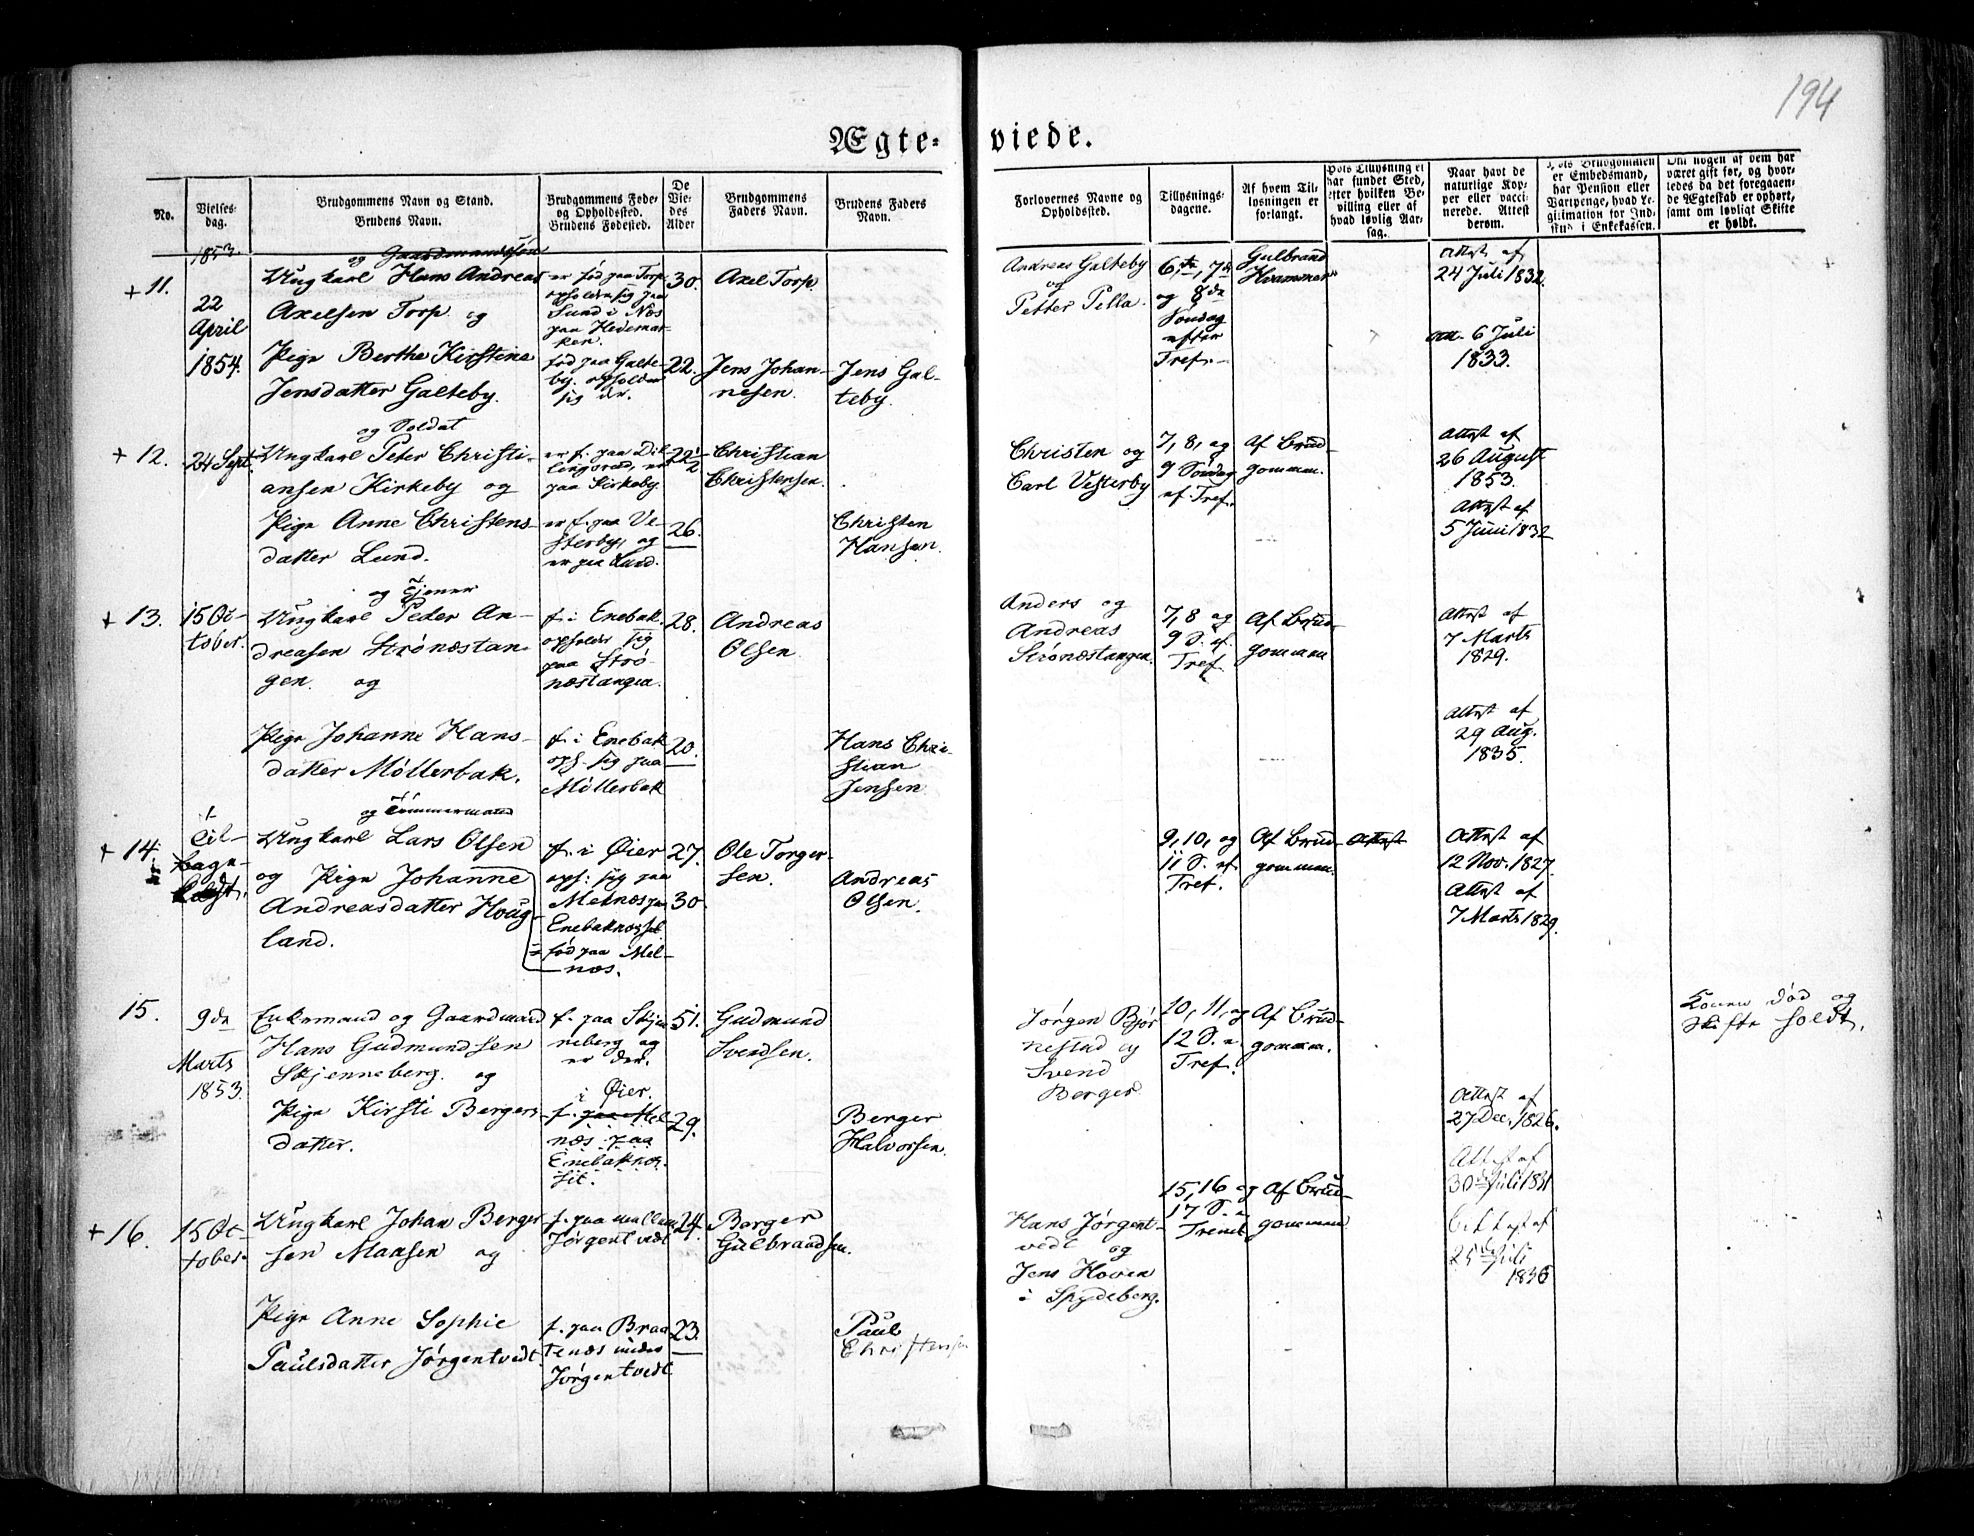 194
Ægte-
viede.
No.
Vielses-
dag.
Brudgommens Navn og Stand.
Brudens Navn.
Brudgommens Føde-
og Opholdssted.
Brudens Fødested.
De
Vie-
des
Alder
Brudgommens
Faders Navn.
Brudens Faders
Navn.
Forlovernes Navne og
Opholdssted.
Tillysnings-
dagene.
Af hvem Til-
lysningen er
forlangt.
Hvis Tillysning ei
har fundet Sted,
efter hvilken Be-
villing eller af
hvad lovlig Aar-
sag.
Naar havt de
naturlige Kop-
per eller vacci-
nerede. Attest
derom.
Hvis Brudgommen
er Embedsmand,
har Pension eller
Vartpenge, hvad Le-
gitimation for Ind-
skud i Enkekassen.
Om nogen af dem har
været gift før, og hvor-
ledes da det foregaaen-
de Ægteskab er ophørt,
samt om lovligt Skifte
er holdt.
1853.
+ 11.
22
April
1854.
og Gaardmandssøn
Ungkarl Hans Andreas
Axelsen Torp og
Pige Berthe Kirstine
Jensdatter Galteby.
er fød paa Torp
opholder sig paa
Lund i Nes
paa Hedemar-
ken.
fød paa Galte-
by. opholder
sig der.
30.
22.
Axel Torp.
Jens Johan-
nesen.
Jens Gal-
teby.
Andreas Galteby
og
Petter Pella.
6te, 7de
og 8de
Søndag
efter
Tref.
Gulbrand
Hvammer
Attest af
24 Juli 1832.
Att. 6 Juli
1833.
+ 12.
24 Sept.
og Soldat
Ungkarl Peter Christi-
ansen Kirkeby og
Pige Anne Christens-
datter Lund.
er f. paa Dil-
lingsrud, er
paa Kirkeby.
er f. paa Ve-
sterby, og
er paa Lund.
22 1/2
26.
Christian
Christensen.
Christen
Hansen.
Christen og
Carl Vesterby
7, 8, og
9 Søndag
ef. Tref.
Af Brud-
gommen.
Attest af
26 August
1853.
Attest af
5 Juni 1832
+ 13.
15 Oc-
tober.
og Tjener
Ungkarl Peder An-
dreasen Strønæstan-
gen. og
Pige Johanne Hans-
datter Møllerbak.
f. i Enebak.
opholder sig
paa Strø-
næstangen.
f. i Enebak
oph. sig paa
Møllerbak
28.
20.
Andreas
Olsen.
Hans Chri-
stian
Jensen
Anders og
Andreas
Strønæstangen.
7, 8 og
9 S. ef.
Tref.
Af Brud-
gommen
Attest af
7 Marts
1829.
Attest af
29 Aug.
1835.
+ 14.
Til-
bage-
kaldt.
og Tømmermand
Ungkarl Lars Olsen
og Pige Johanne
Andreasdatter Houg-
land.
f. i Øier
oph: sig paa
Melnæs paa
Enebaknesset
fød paa Mel-
næs.
27.
30.
Ole Torger-
sen.
Andreas
Olsen.
9, 10, og
11 S. ef.
Tref.
Af Brud-
gommen.
Attest
Attest af
12 Nov. 1827.
Attest af
7 Marts 1829.
15.
9de
Marts
1853.
Enkemand og Gaardmand
Hans Gudmundsen
Skjenneberg. og
Pige Kirsti Bergers-
datter.
f. paa Skjen-
neberg og
er der.
i Øier.
f. paa Mel-
næs paa
Enebaknes-
sit.
51.
29.
Gudmund
Svendsen.
Berger
Halvorsen.
Jørgen Bjør-
nestad og
Svend
Berger.
10, 11, og
12 S. e.
Tref.
Af Brud-
gommen.
Attest af
27 Dec. 1826.
Konen død og
Skifte holdt.
+ 16.
15 Oc-
tober.
Ungkarl Johan Berger-
sen Maasen og
Pige Anne Sophie
Paulsdatter Jørgentvedt
f. paa mellem
Jørgentvedt
f. paa Braa-
tenæs under
Jørgentvedt
24.
23.
Berger
Gulbrandsen.
Paul
Christensen
Hans Jørgent-
vedt og
Jens Hoven
i Spydeberg.
15, 16 og
17 S. e.
Trenet.
Af Brud-
gommen.
Attest af
30de Juli 1831
Attest af
25de Juli
1836